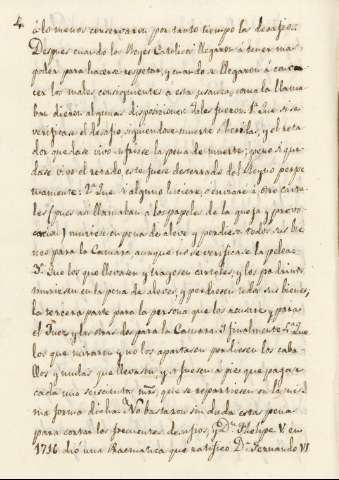 4.
á lo menos conservaron por tanto tiempo los desafios.
Despues cuando los Reyes Catolicos llegaron á tener mas
poder para hacerse respetar, y cuando se llegaron á cono-
cer los males consiguientes á esta usanza, como la llama-
ban dieron algunas disposiciones tales fueron: 1ª Que si se
verificase el desafio, siguiendose muerte ó herida, y el reta-
dor quedase vivo sufriese la pena de muerte; pero si que-
dase vivo el retado, este fuese desterrado del Reyno perpe-
tuamente: 2ª Que si alguno hiciere, ó enviare á otro carte-
les (pues asi llamaban á los papeles de la queja y provo-
cacion) muriese en pena de aleve y perdiese todos sus bie-
nes para la Camara, aunque no se verificase la pelea:
3ª Que los que llevasen y trageren carteles, y los padrinos
muriesen en la pena de aleves, y perdiesen todos sus bienes,
la tercera parte para la persona que los acusare, y para
el Juez, y las otras dos para la Camara. Y finalmente 4ª Que
los que miraren y no los apartasen perdiesen los caba-
llos y mulas que llevasen, y si fuesen á pie, que pagase
cada uno seiscientos mrs. que se repartiesen en la mis-
ma forma dicha. No bastaron sin duda estas penas
para cortar los frecuentes desafios, y Dn. Phelipe V. en
1716 dió una Pracmatica que ratificó Dn. Fernando VI